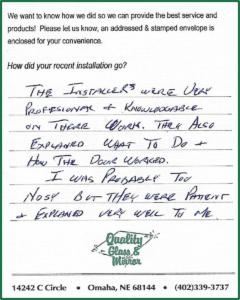 We want to know how we did so we can provide the best service and
products! Please let us know, an addressed & stamped envelope is
enclosed for your convenience.
How did your recent installation go?
THE INSTALLERS WERE VERY
PROFESIONAL & KNOWLEDGABLE
ON THERE WORK. THEY ALSO
EXPLAINED WHAT TO DO &
HOW THE DOOR WORKED.
I WAS PROBABLY TOO
NOSY BUT THEY WERE PATIENT
& EXPLAINED VERY WELL TO ME.
Quality
Glass &
Mirror
14242 C Circle • Omaha, NE 68144 • (402)339-3737